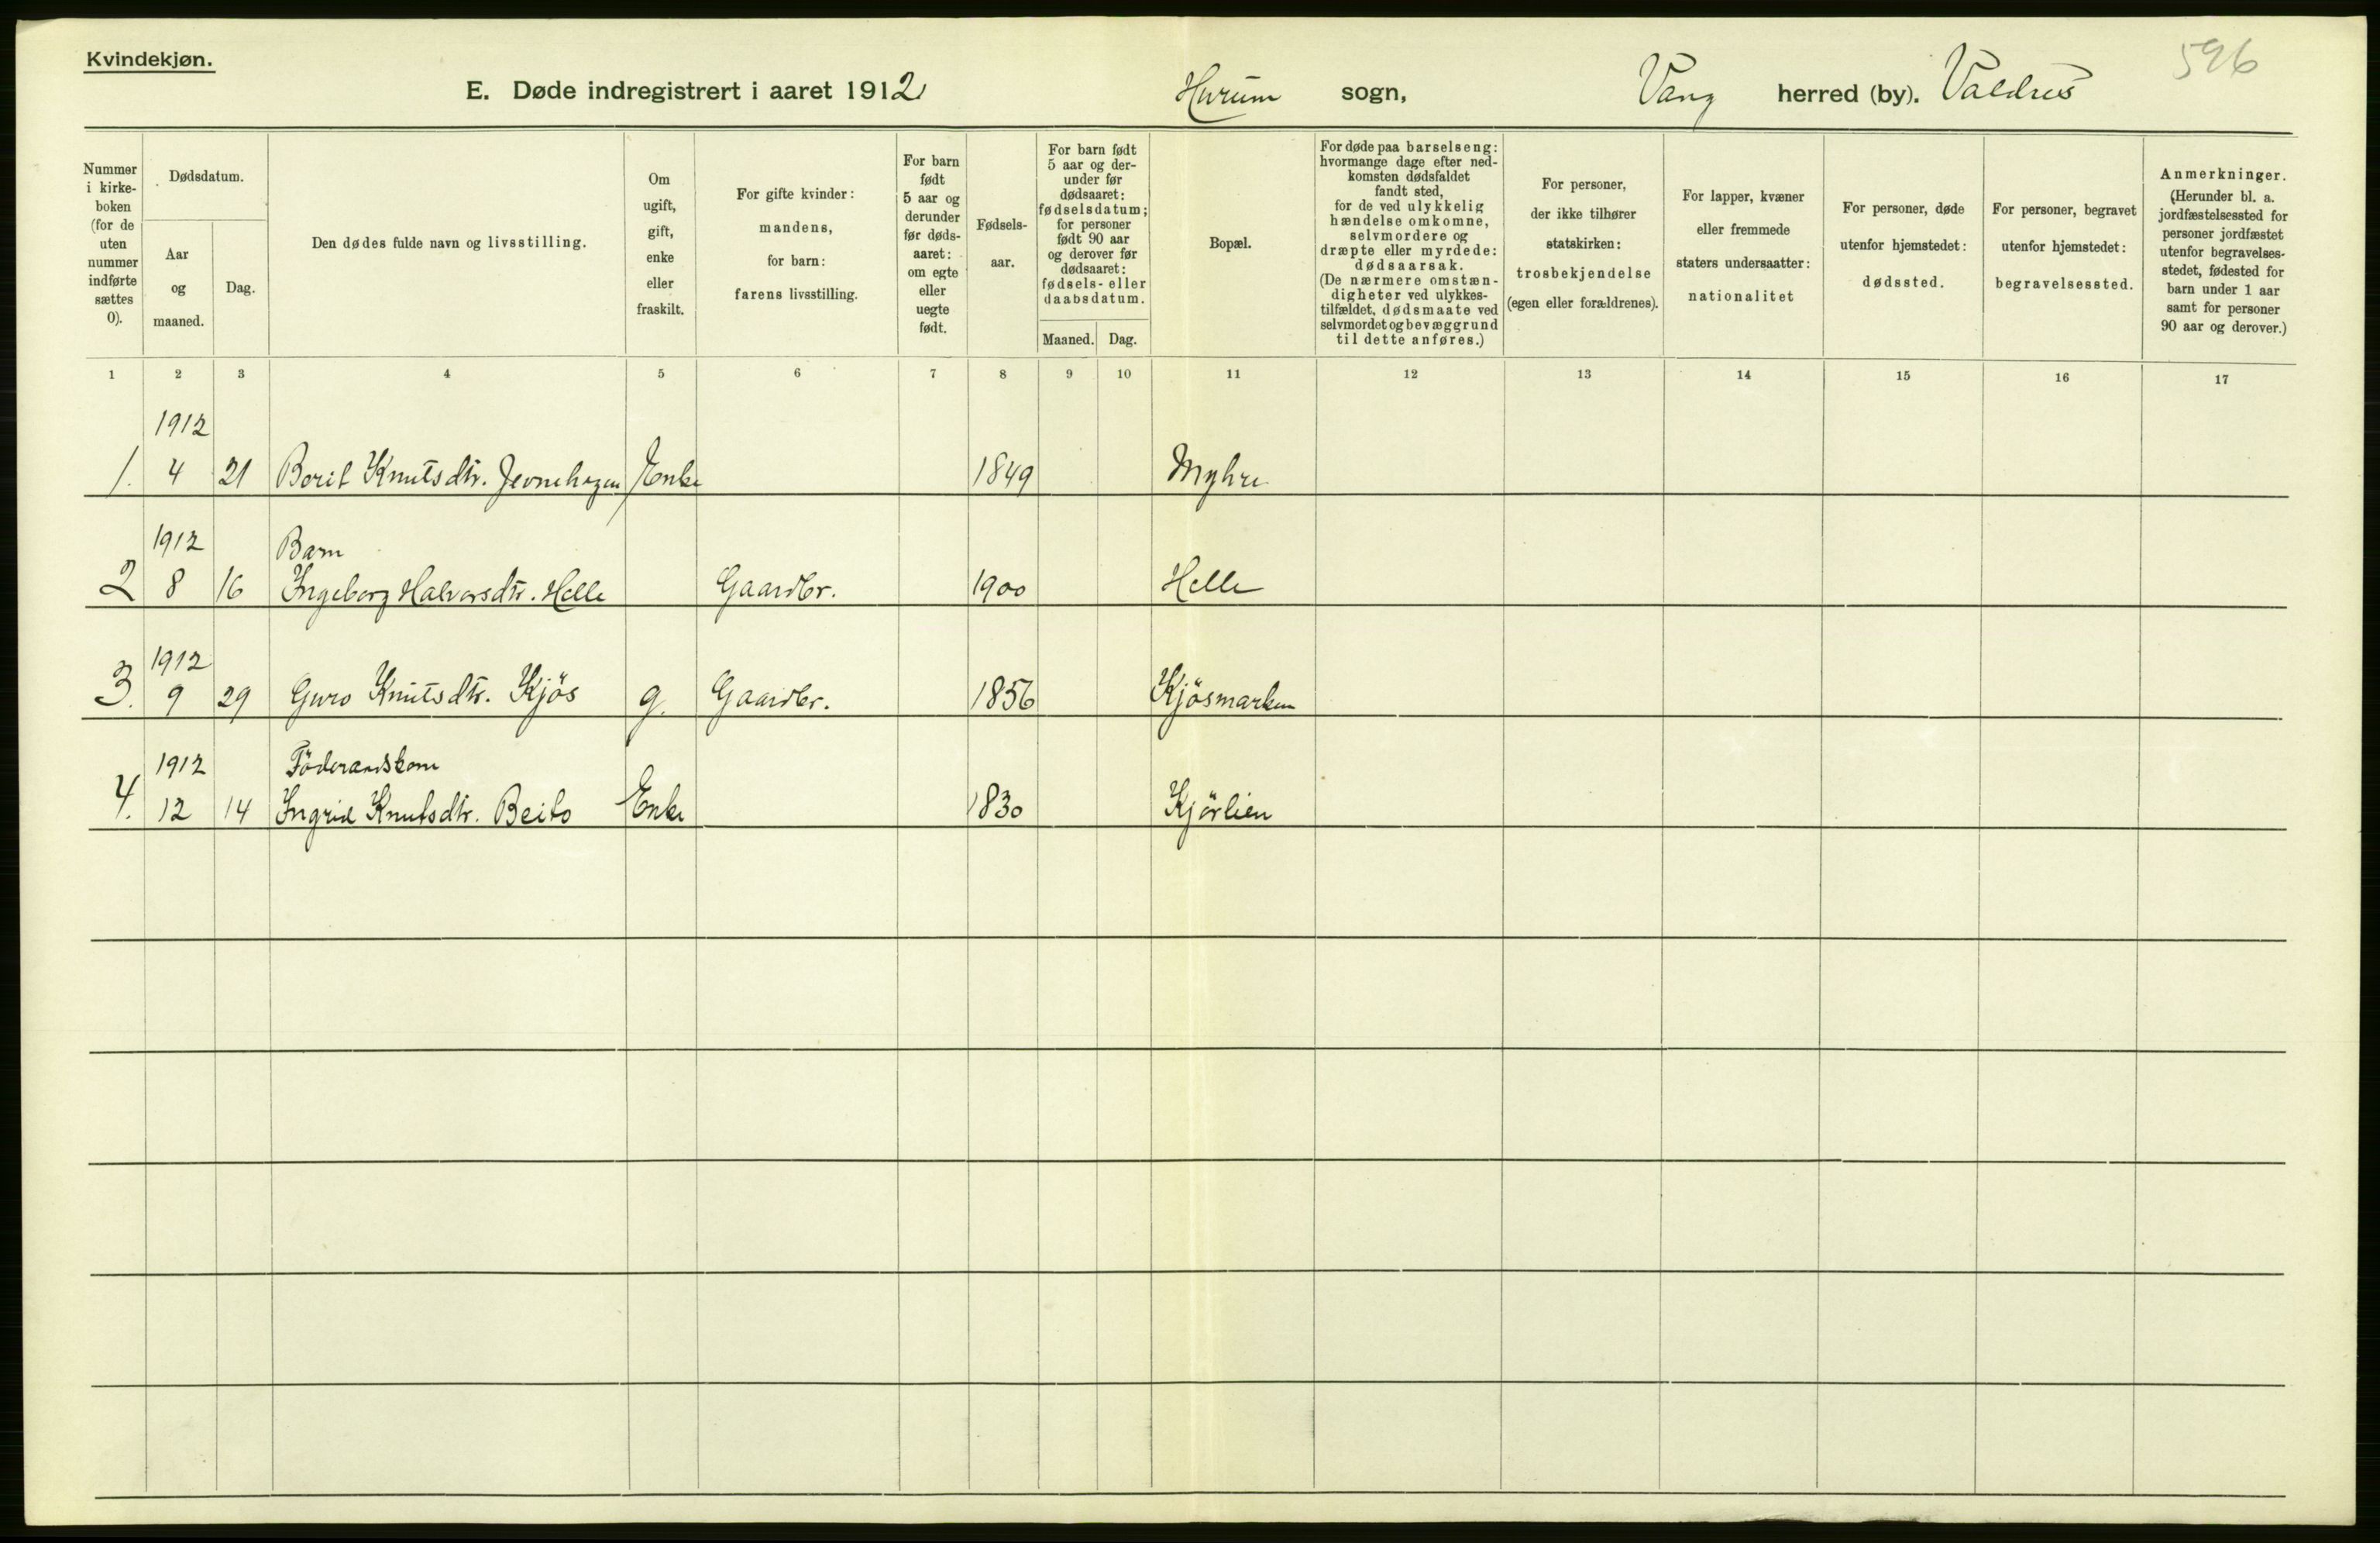 Kvindekjøn.
596
E. Døde indregistrert i aaret 1912 Hurum sogn, Vang herred (by). Valdres
Nummer i kirke-boken (for de uten nummer indførte sættes 0).
Dødsdatum.
Aar og maaned.
Dag.
Den dødes fulde navn og livsstilling.
Om ugift, gift, enke eller fraskilt.
For gifte kvinder: mandens, for barn: farens livsstilling.
For barn født 5 aar og derunder før døds-aaret: om egte eller uegte født.
Fødsels-aar.
For barn født 5 aar og der-under før dødsaaret: fødselsdatum; for personer født 90 aar og derover før dødsaaret: fødsels- eller daabsdatum.
Maaned. Dag.
Bopæl.
For døde paa barselseng: hvormange dage efter ned-komsten dødsfaldet fandt sted, for de ved ulykkelig hændelse omkomne, selvmordere og dræpte eller myrdede: dødsaarsak. (De nærmere omstæn-digheter ved ulykkes-tilfældet, dødsmaate ved selvmordet og bevæggrund til dette anføres.)
For personer, der ikke tilhører statskirken: trosbekjendelse (egen eller forældrenes).
For lapper, kvæner eller fremmede staters undersaatter: nationalitet
For personer, døde utenfor hjemstedet: dødssted.
For personer, begravet utenfor hjemstedet: begravelsessted.
Anmerkninger. (Herunder bl. a. jordfæstelsessted for personer jordfæstet utenfor begravelses-stedet, fødested for barn under 1 aar samt for personer 90 aar og derover.)
1 2 3 4 5 6 7 8 9 10 11 12 13 14 15 16 17
1912
1. 4 21 Borit Knutsdtr. Jevnehagen Enke 1849 Myhre
1912 Barn
2 8 16 Ingeborg Halvorsdtr. Helle Gaardbr. 1900 Helle
1912
3. 9 29 Guro Knutsdtr. Kjös g. Gaardbr. 1856 Kjösmarken
1912 Föderaadskone
4. 12 14 Ingrid Knutsdtr. Beito Enke 1830 Kjörlien